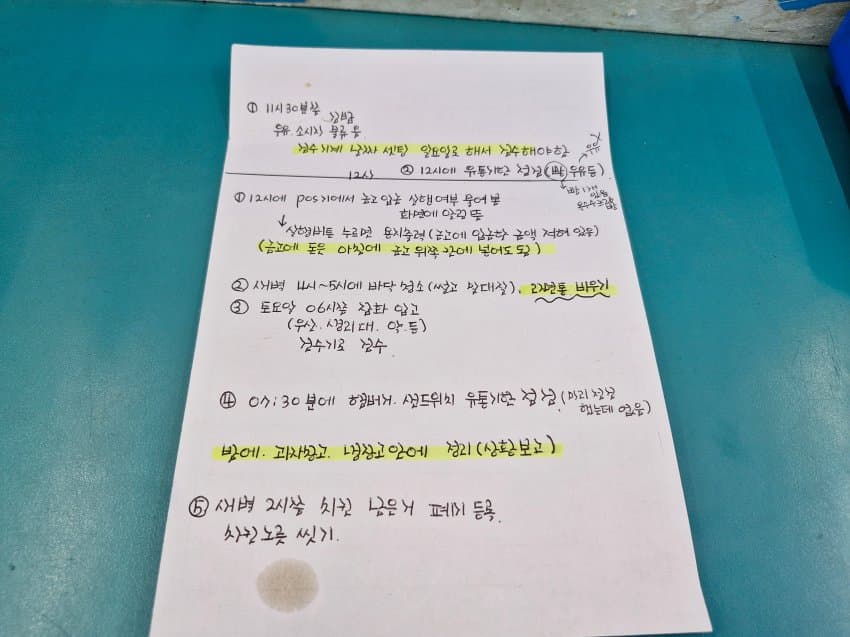 ① 11시30분쯤
냉밥
우유. 소시지 물류 옴
검수기계 날짜 셋팅 일요일로 해서 검수해야함
X
우유
② 12시에 유통기한 점검 (빵, 우유등)
12시
① 12시에 pos기에서 금고입금 실행여부 물어봄
화면에 알림 뜸
↓ 실행버튼 누르면 용지출력 (금고에 입금할 금액 적혀 있음)
(금고에 돈은 아침에 금고 위쪽 칸에 넣어도 됨)
② 새벽 4시~5시에 바닥 청소 (쓸고 밀대질). 라면통 비우기
③ 토요일 06시쯤 잡화 입고
(우산. 생리대. 약 등)
검수기로 검수
④ 07:30분에 햄버거. 샌드위치 유통기한 점검 (미리 점검
했는데 없음)
밤에. 과자창고. 냉장고안에 정리 (상황보고)
⑤ 새벽 2시쯤 치킨 남은거 폐기 등록
치킨도구 씻기.